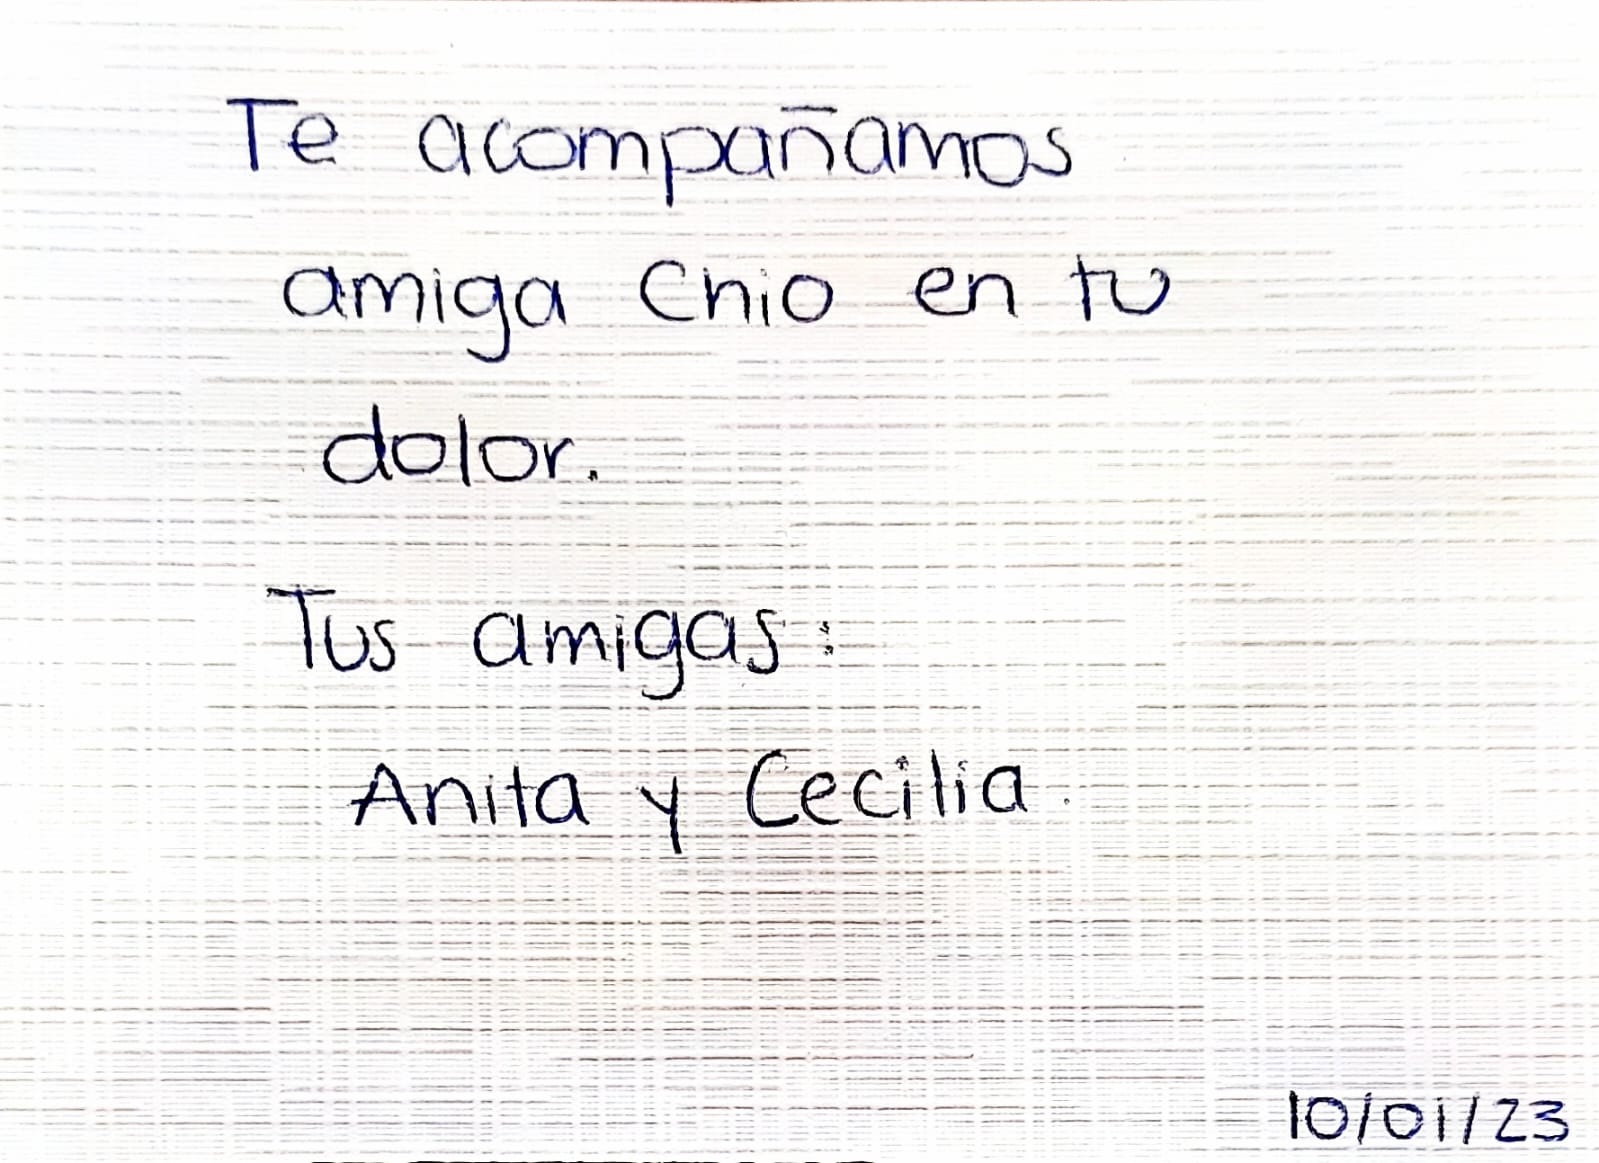 Te acompañamos
amiga Chio en tu
dolor.
Tus amigas:
Anita y Cecilia.
10/01/23